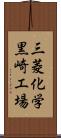 三菱化学
黒崎工場